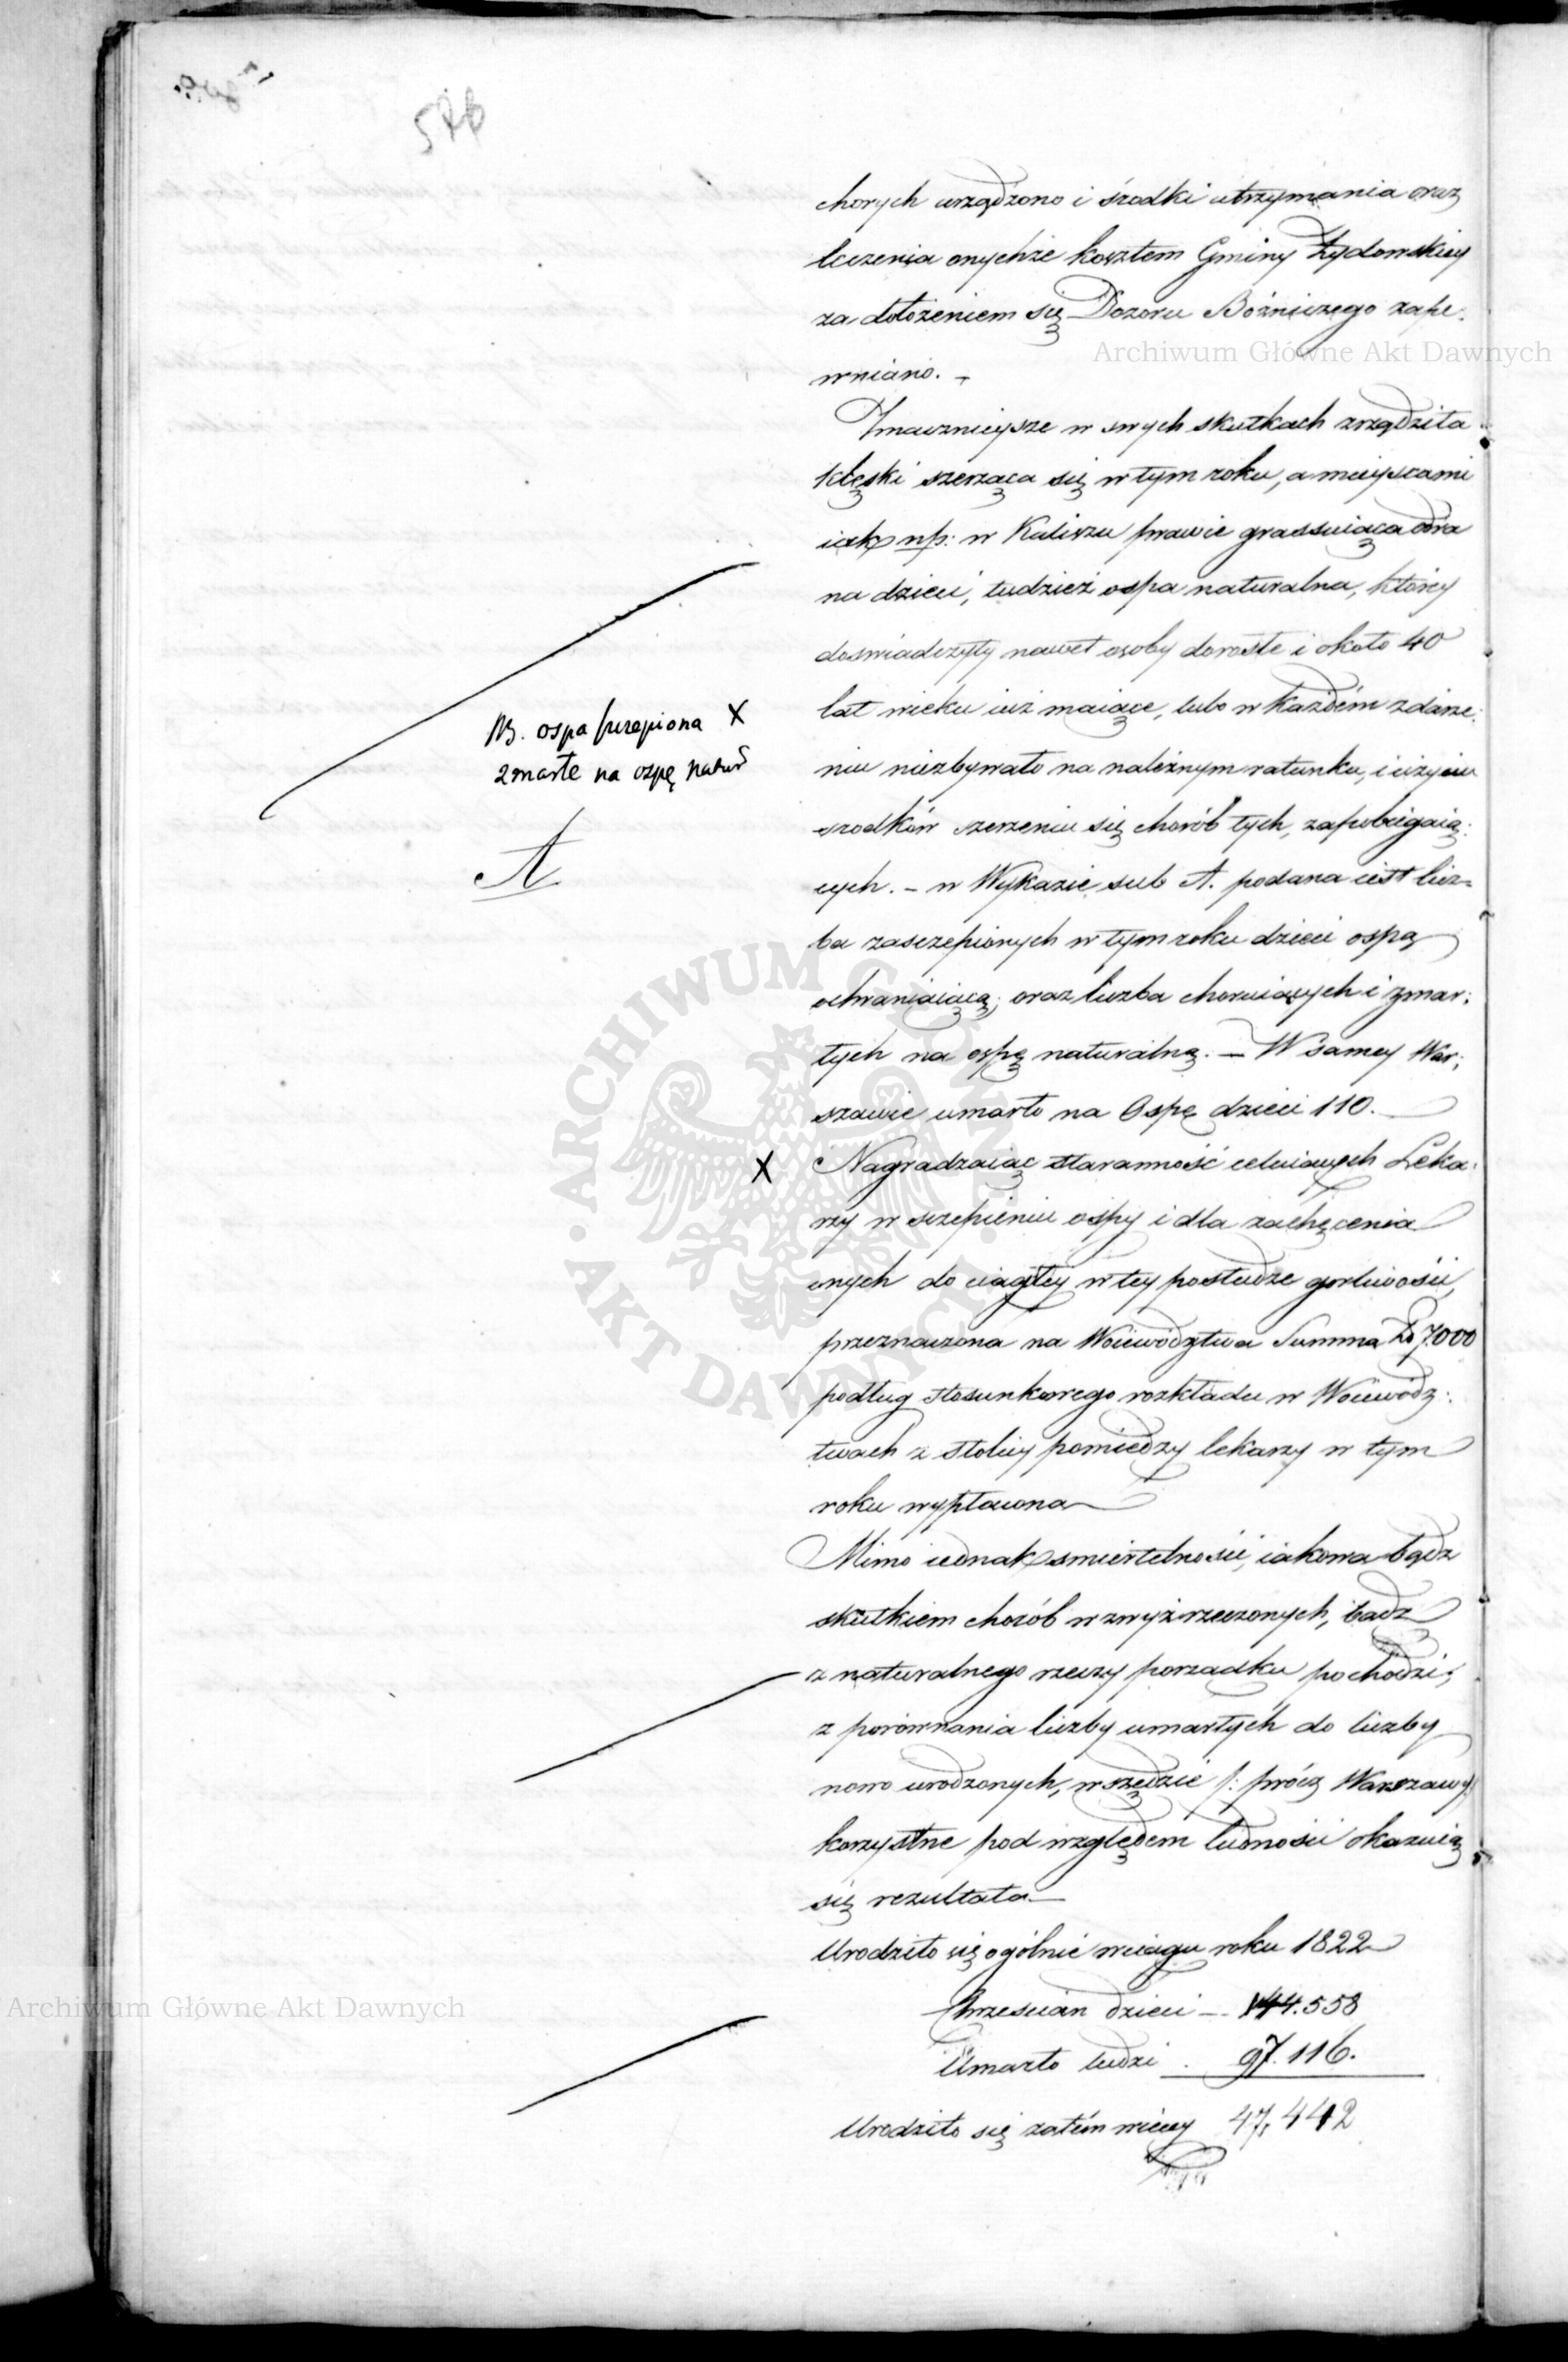 576
chorych urządzono i środki utrzymania oraz
leczenia onychże kosztem Gminy Żydowskiey
za dołożeniem się Dozoru Bożniczego zape.
wniano. –
Znacznieysze w swych skutkach zrządziła
klęski szerząca się w tym roku, a mieyscami
iak np: w Kaliszu prawie grassuiąca odra
na dzieci, tudzież ospa naturalna, którey
doświadczyły nawet osoby dorosłe i około 40
lat wieku iuż maiące, lubo w każdém zdarze:
niu niezbywało na należnym ratunku, i użyciu
środków szerzeniu się chorób tych, zapobiegaią:
cych. – w Wykazie sub A. podana iest licz=
ba zasczepionych w tym roku dzieci ospą
ochraniaiącą; oraz liczba choruiących i zmar:
łych na ospę naturalną. – W samey War:
szawie umarło na Ospę dzieci 110. –
Nagradzaiąc staranność celuiących Leka:
rzy w sczepieniu ospy i dla zachęcenia
onych do ciągłey w tey posłudze gorliwości,
przeznaczona na Woiewództwa Summa Zł 7000
podług stosunkowego rozkładu w Woiewódz:
twach z stolicy pomiędzy lekarzy w tym
roku wypłacona –
Mimo iednak smiertelności, iakowa bądz
skutkiem chorób wzwyż rzeczonych, bądz
z naturalnego rzeczy porządku pochodzi;
z porównania liczby umarłych do liczby
nowo urodzonych, wszędzie /: prócz Warszawy
korzystne pod względem ludności okazuią
się rezultata –
Urodziło się ogólnie w ciągu roku 1822
Chrześcian dzieci – 144.558
Umarło ludzi . 97.116.
Urodziło się zatém więcey 47,442
NB. ospa szczepiona X
zmarłe na ospę natur
A
X
Archiwum Główne Akt Dawnych
ARCHIWUM GŁÓWNE AKT DAWNYCH
Archiwum Główne Akt Dawnych